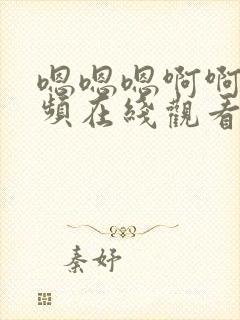 嗯嗯嗯啊啊
頻在綫觀看
秦妤